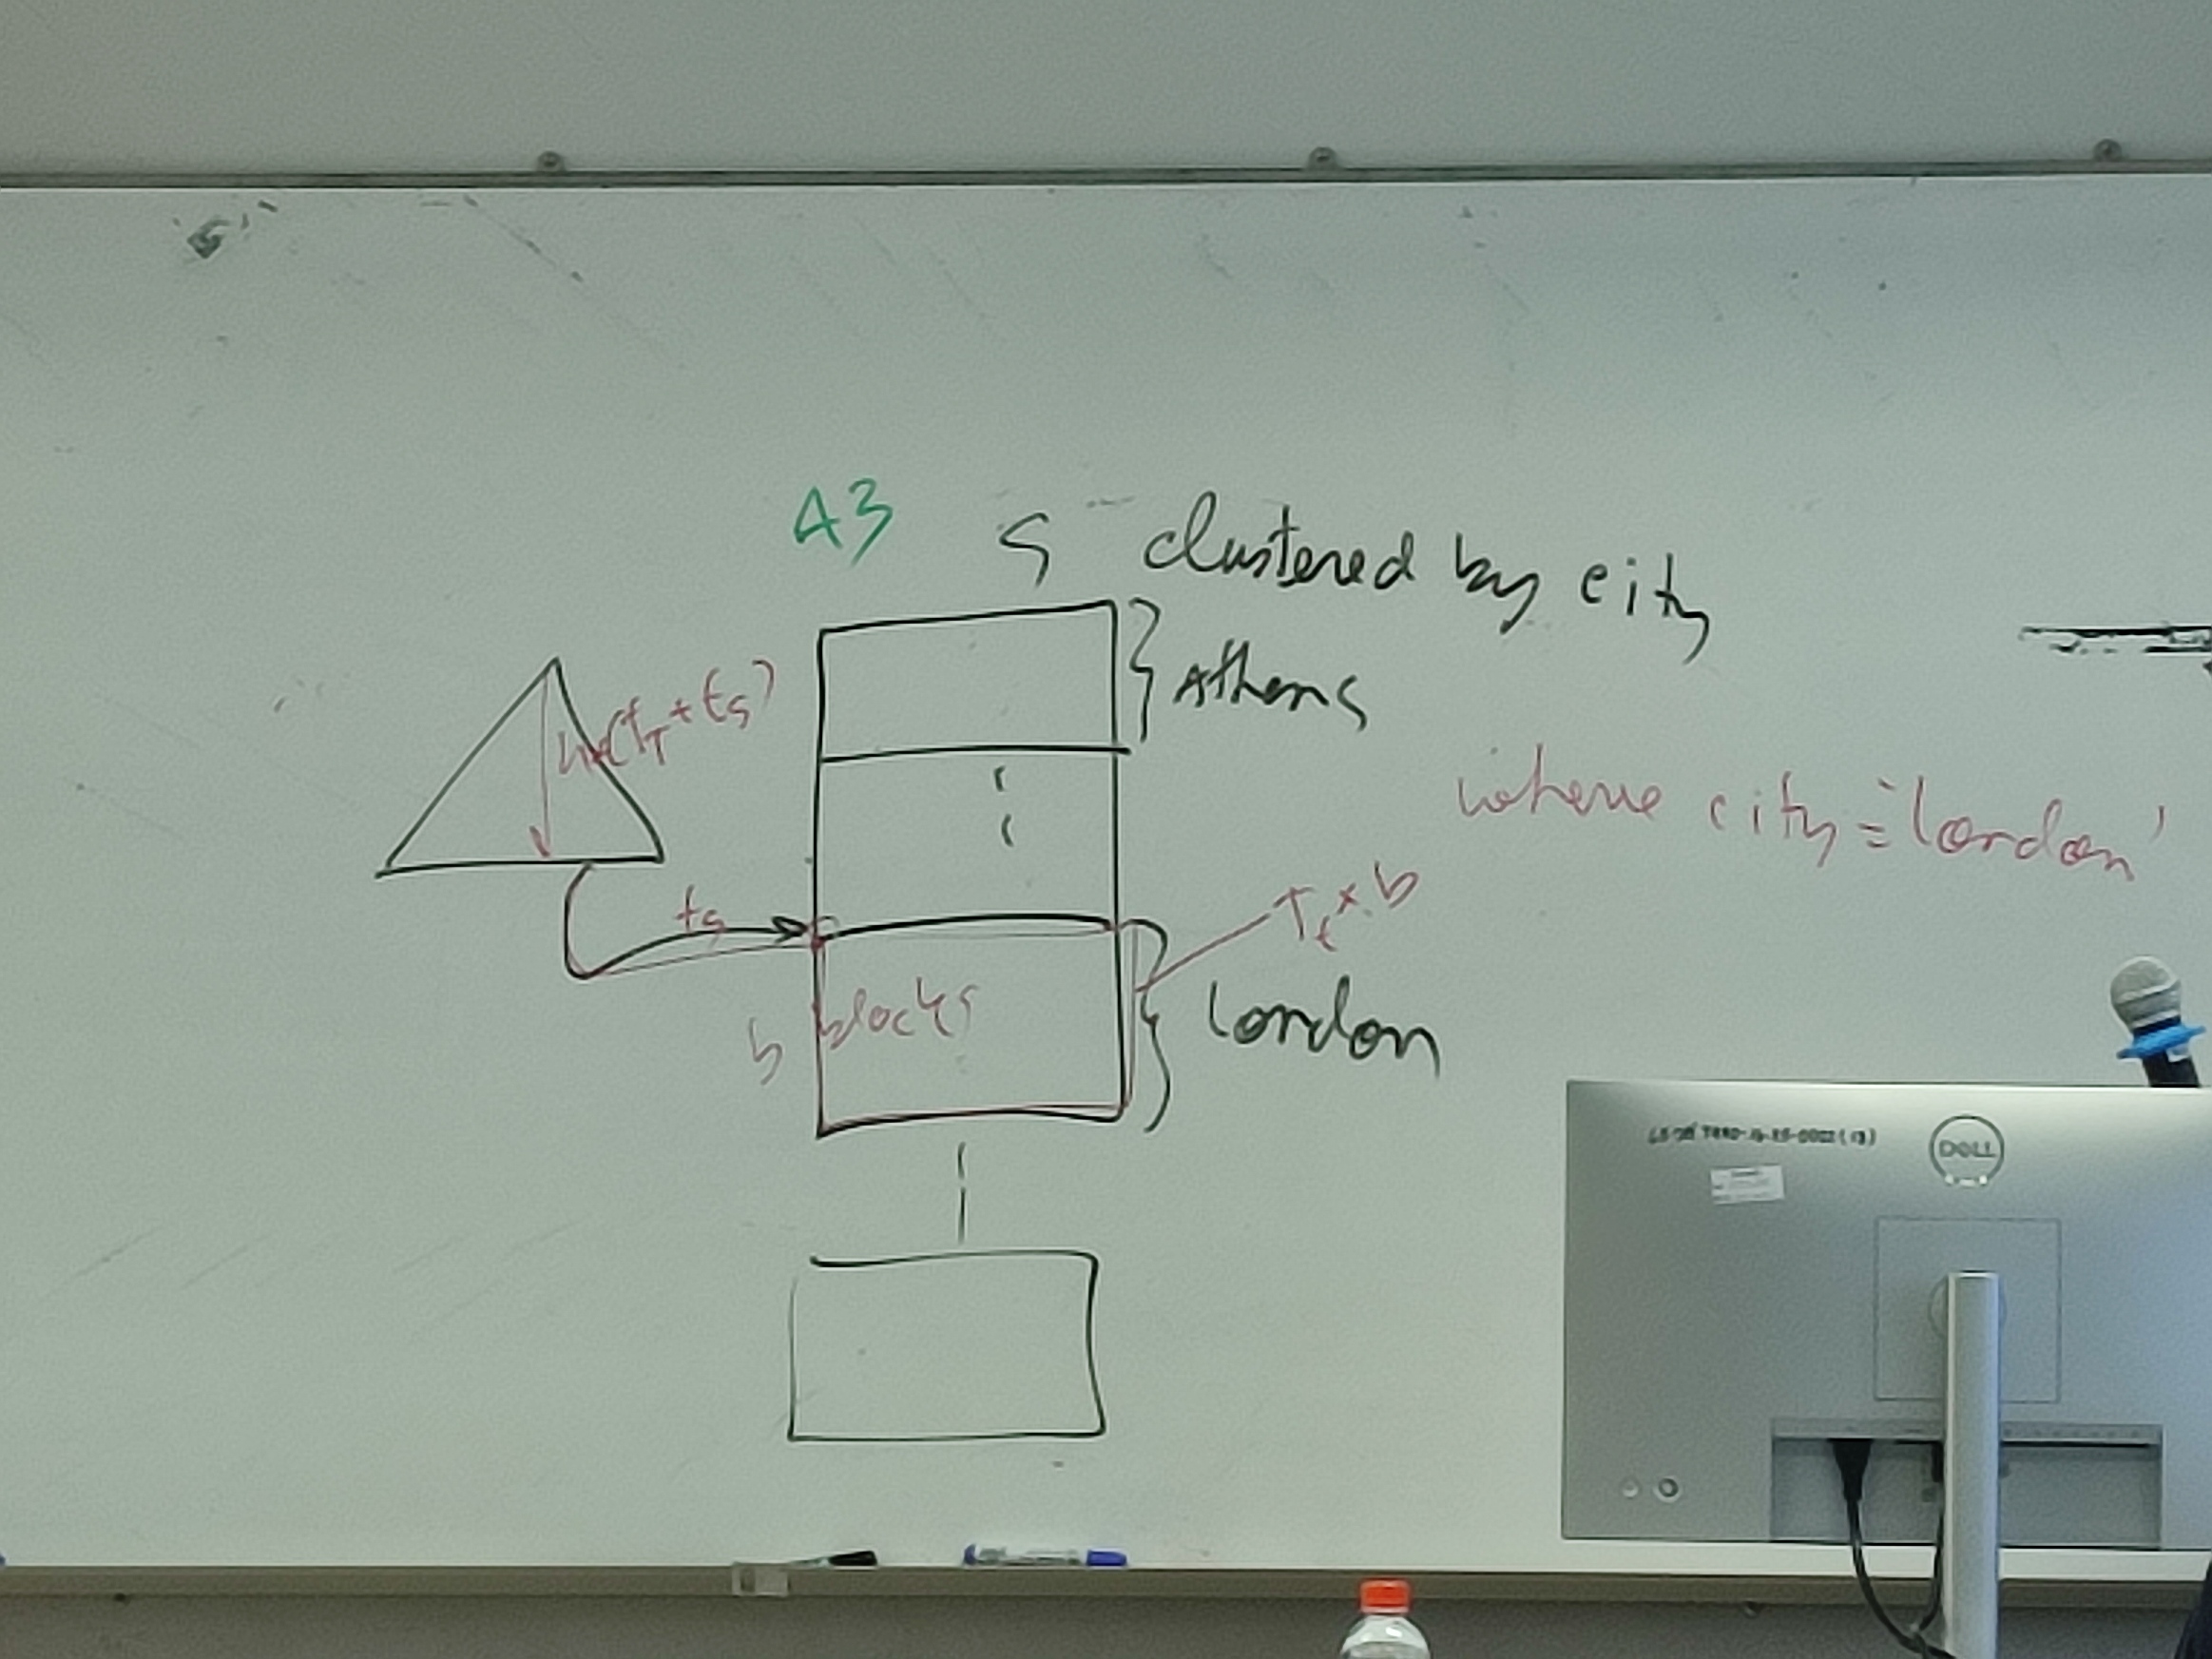 A3 S clustered by city
Athens
h*(tT + tS)
where city = 'London'
tS
Tt * b
b blocks
London
DELL